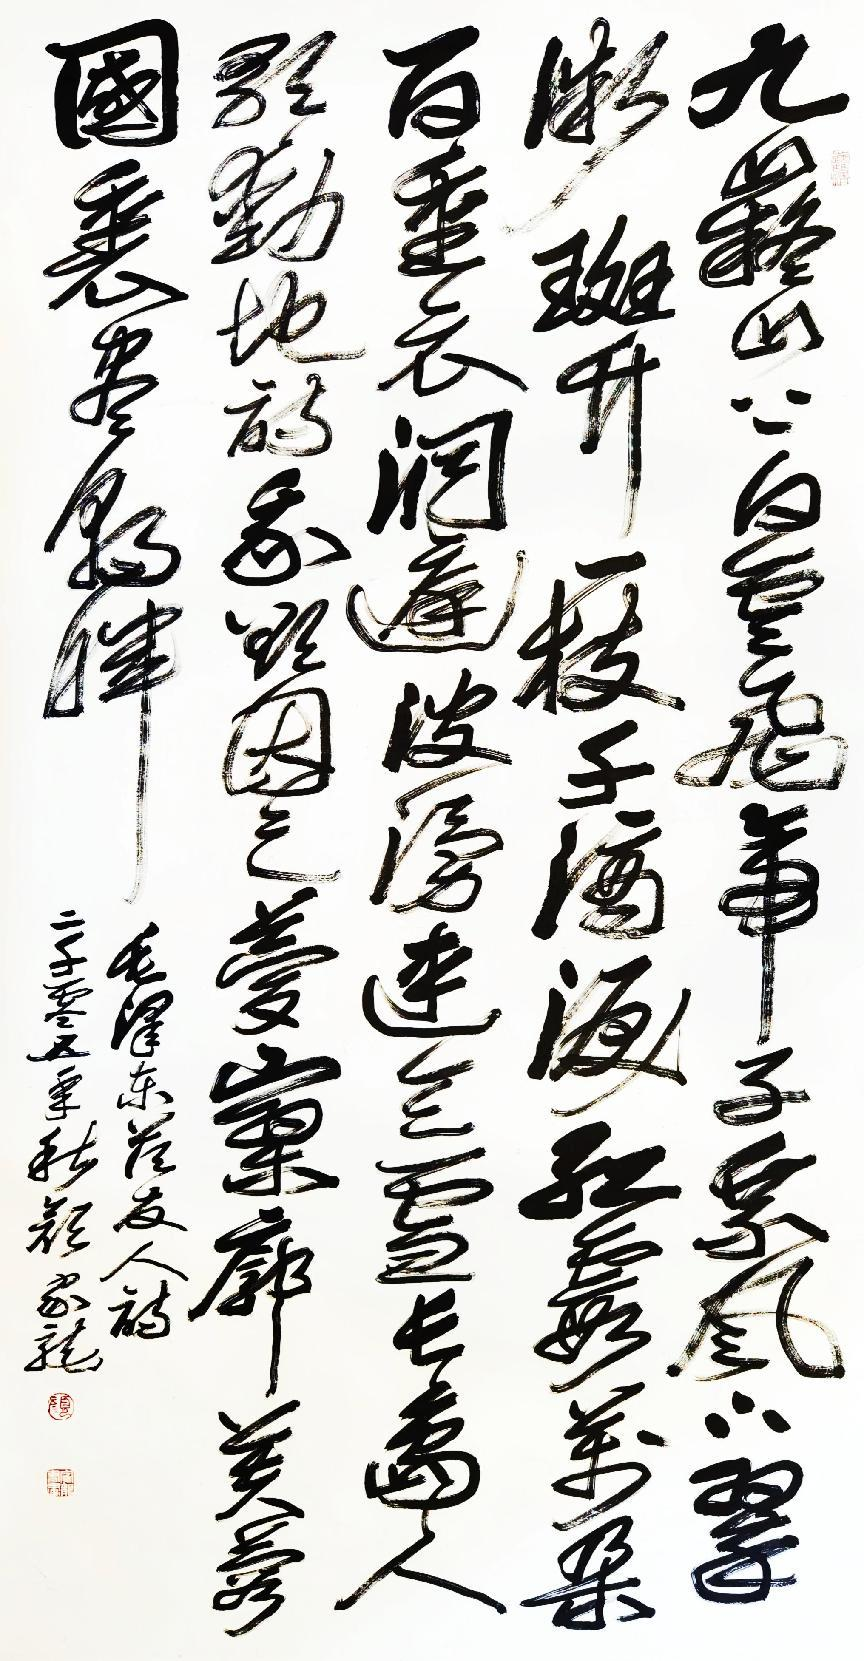 九嶷山上白雲飛帝子乘風下翠
微斑竹一枝千滴泪紅霞萬朵
百重衣洞庭波湧連天雪長島人
歌動地詩我欲因之夢寥廓芙蓉
國裏盡朝暉
毛澤东答友人詩
二千零五年秋顏家龍